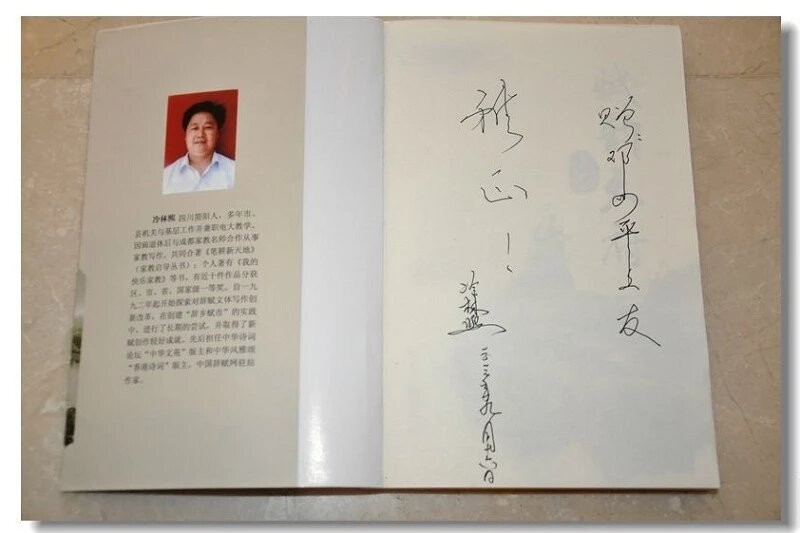 冷林熙 四川简阳人,多年市、
县机关与基层工作并兼职电大教学,
因病退休后与成都家教名师合作从事
家教写作,共同合著《笔耕新天地》
(家教启导丛书);个人著有《我的
快乐家教》等书,有近十件作品分获
区、市、省、国家级一等奖。自一九
九二年起开始探索对辞赋文体写作创
新改革,在创建“辞乡赋市”的实践
中,进行了长期的尝试,并取得了新
赋创作较好成就。先后担任中华诗词
论坛“中华文苑”版主和中华风雅颂
“香港诗词”版主,中国辞赋网驻站
作家。
赠邓平文友
雅正!
冷林熙
二〇一三年九月十六日